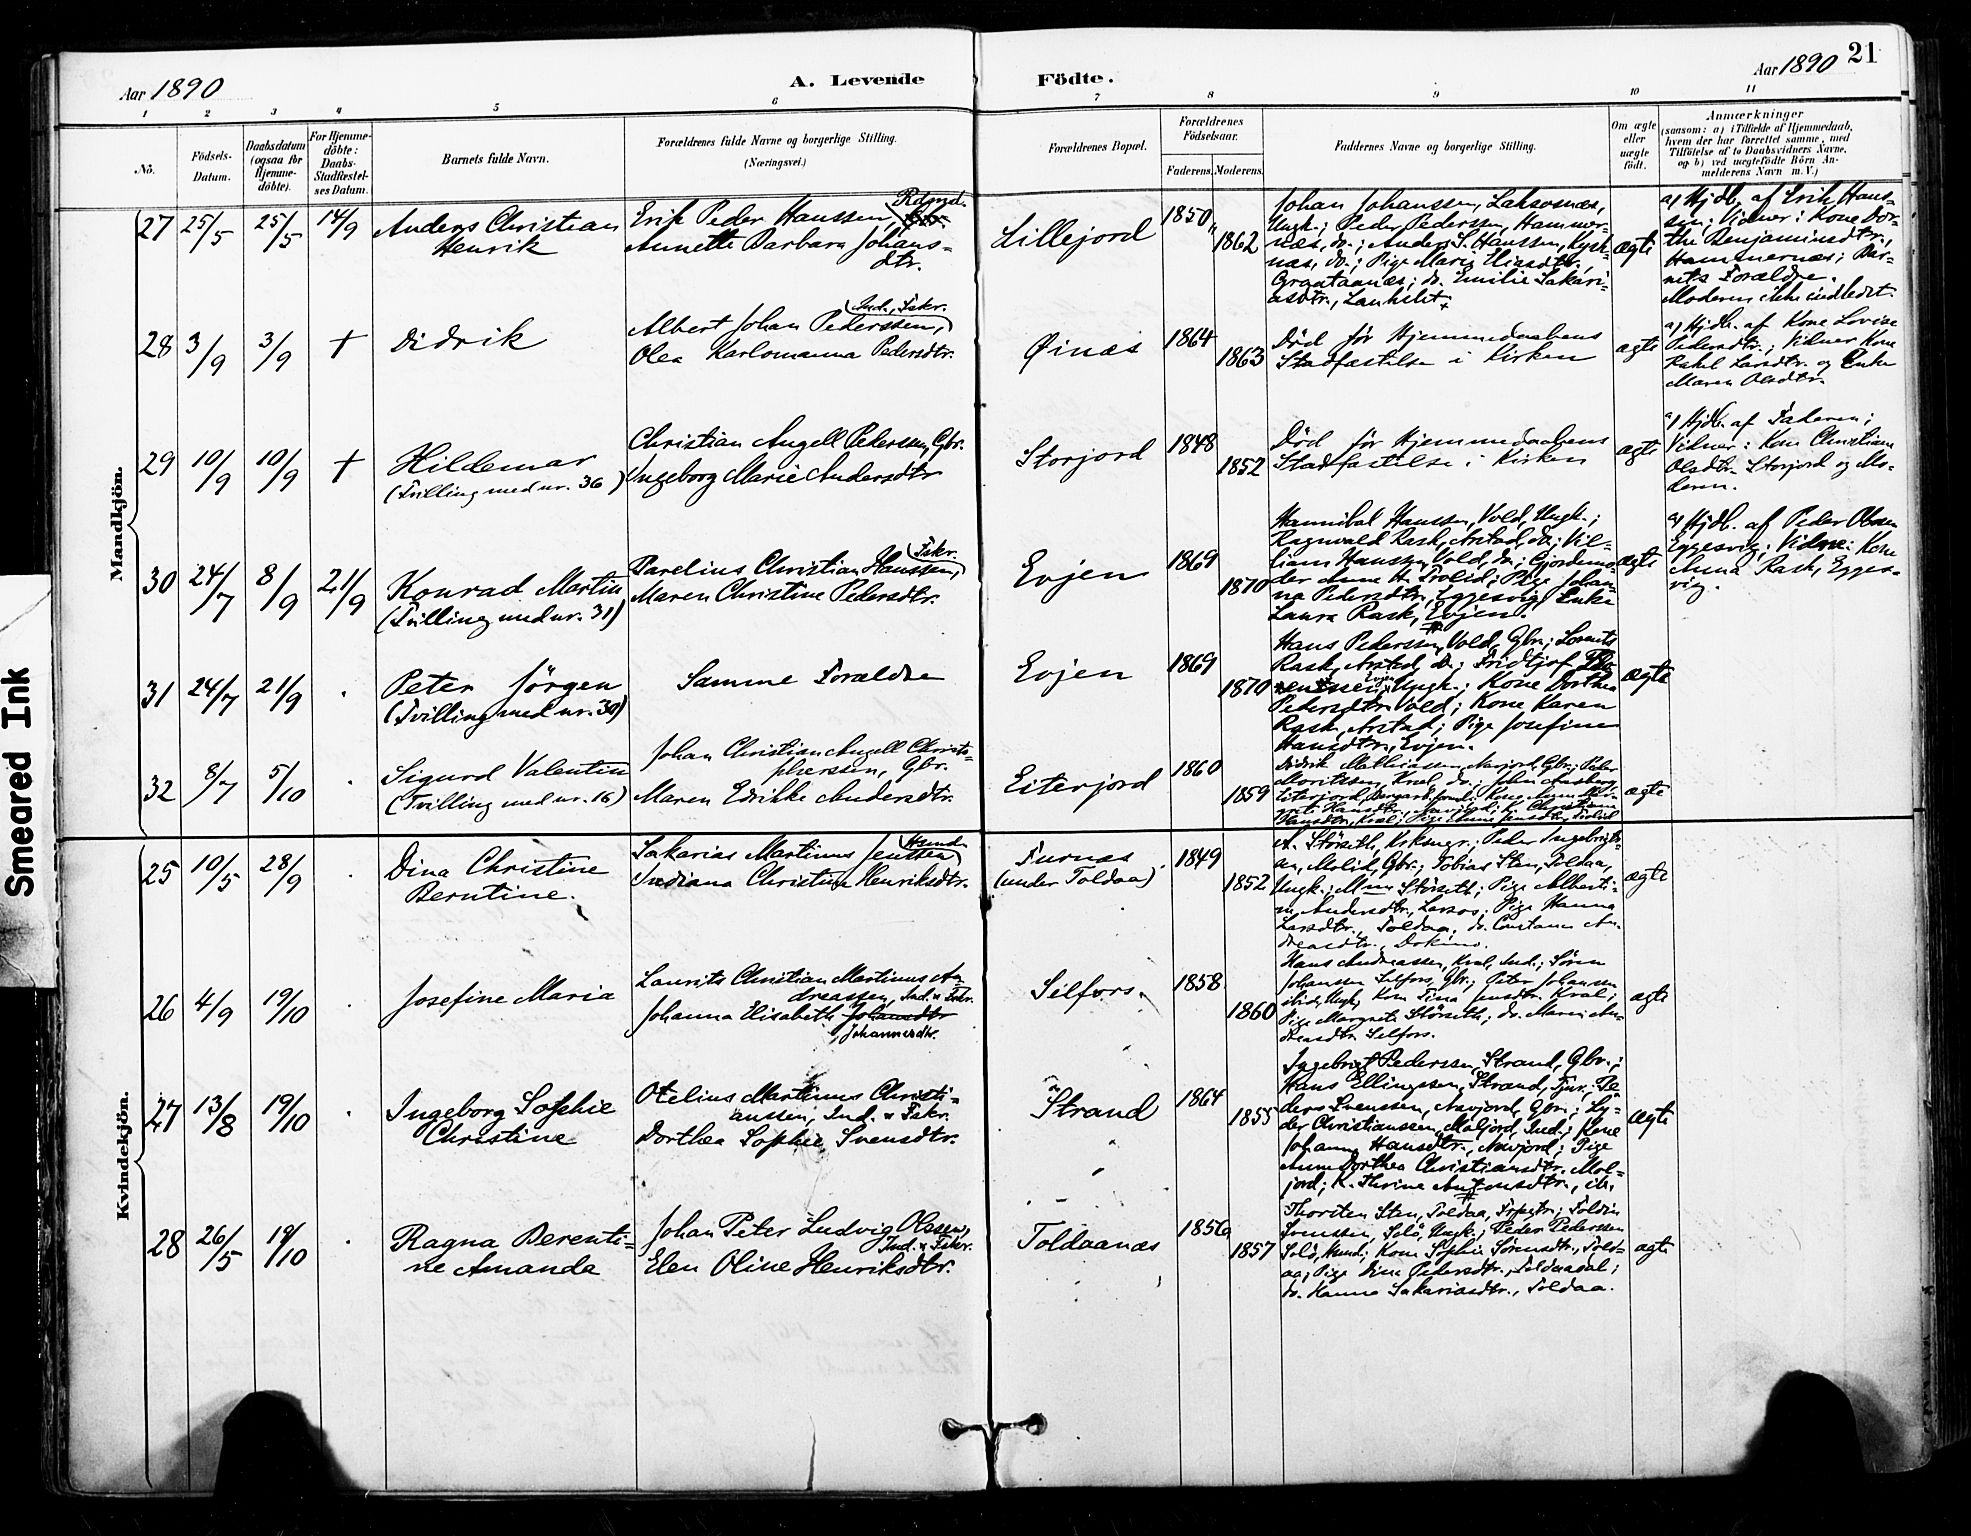 Aar 1890
A. Levende
Födte.
Aar 1890
21
1 2 3 4 5 6 7 8 9 10 11
No.
Födsels-
Datum.
Daabsdatum
(ogsaa for
Hjemme-
döbte).
For Hjemme-
döbte:
Daabs-
Stadfæstel-
ses Datum.
Barnets fulde Navn.
Forældrenes fulde Navne og borgerlige Stilling.
(Næringsvei.)
Forældrenes Bopæl.
Forældrenes
Födselsaar.
Faderens.
Moderens.
Faddernes Navne og borgerlige Stilling.
Om ægte
eller
uægte
födt.
Anmærkninger
(saasom: a) i Tilfælde af Hjemmedaab,
hvem der har forrettet samme, med
Tilföielse af to Daabsvidners Navne,
og b) ved uægtefödte Börn An-
melderens Navn m. V.)
Mandkjön.
27 25/5 25/5 14/9
Anders Christian
Henrik
Rdmd.
Erik Peder Hanssen
Annette Barbara Johans-
dtr.
Lillejord
1850
1862
Johan Johanssen, Laksosnæs,
Ungk.; Peder Pederssen, Hammer-
næs, do.; Anders S. Hanssen, Kysk-
næs, do.; Pige Marie Eliasdtr.
Graataanæs; do. Emilie Sakari-
asdtr.,
ægte
a) Hjdb. af Erik Hans-
sen; Vidner: Kone Dor-
the Benjaminsdtr.,
Hammernæs; Bar-
nets Forældre.
Moderen ikke indledet.
28 3/9 3/9 +
Didrik
Ind., Fskr.
Albert Johan Pederssen,
Olea Karlomanna Pedersdtr.
Øinæs
1864
1863
Död för Hjemmedaabens
Stadfæstelse i Kirken
ægte
a) Hjdb. af Kone Lovise
Pedersdtr.; Vidner Kone
Rakel Larsdtr. og Enke
Maren Olsdtr.
29 10/9 10/9 +
Hildemar
(Tvilling med nr. 36)
Christian Angell Pederssen, Gbr.
Ingeborg Marie Andersdtr
Storjord
1848
1852
Död för Hjemmedaabens
Stadfæstelse i Kirken
ægte
a) Hjdb. af Faderen;
Vidner: Kone Christiane
Olsdtr. Storjord og Mo-
deren.
30 24/7 8/9 21/9
Konrad Martin
(Tvilling med nr. 31)
Fskr.
Parelius Christian Hanssen,
Maren Christine Pedersdtr.
Evjen
1869
1870
Hannibal Hanssen, Vold, Ungk.;
Ragnvald Rask, Arstad, do.; Vil-
liam Hanssen, Vold, do.; Gjordemo-
der Anne H. Frolid; Pige Johan-
na Pedersdtr., Eggesvig; Enke
Laura Rask, Evjen.
ægte
a) Hjdb. af Peder Olssen
Eggesvig; Vidne: Kone
Anna Rask, Egges-
vig.
31 24/7 21/9
Peter Jörgen
(Tvilling med nr. 30)
Samme Forældre
Evjen
1869
1870
Hans Pederssen, Vold, Gbr.; Lorents
Rask, Arstad, do.; Fridtjof
Evjen, Ungk.; Kone Dorthea
Pedersdtr. Vold; Kone Karen
Rask, Arstad; Pige Josefine
Hansdtr., Evjen.
ægte
32 8/7 5/10
Sigurd Valentin
(Tvilling med nr. 16)
Johan Christian Angell Christo-
pherssen, Gbr.
Maren Edrikke Andersdtr.
Eiterjord
1860
1859
Didrik Mathiassen, Navjord, Gbr.; Peder
Moritssen, Kval, do.; Johan
Eiterjord,
ægte
Kvindekjön.
25 10/5 28/9
Dina Christine
Berntine.
Hmd.
Sakarias Martinus Jenssen
Indiana Christine Henriksdtr.
Furnæs
(under Toldaa)
1849
1852
A. Störseth, Krksngr.; Peder Ingebrigts-
en, Molid, Gbr.; Tobias Sten, Toldaa,
Ungk.; Mme Störseth; Pige Alberti-
ne Andersdtr., Larsos; Pige Hanna
Larsdtr., Toldaa, do. Constance An-
dreasdtr.,
ægte
26 4/9 19/10
Josefine Maria
Laurits Christian Martinus An-
dreassen, Ind. & Fskr.
Johanna Elisabeth Johansdtr
Johannesdtr.
Selfors.
1858
1860
Hans Andreassen, Kval, Ind.; Sören
Johanssen Selfors, Gbr.; Peter Johanssen
ibid., Ungk.; Kone Tina Jensdtr. Kval;
Pige Margrete Störseth; do. Maria An-
dreasdtr. Selfors.
ægte
27 13/8 19/10
Ingeborg Sophie
Christine
Otelius Martinus Christi-
anssen, Ind. & Fskr.
Dorthea Sophie Svensdtr.
Strand
1864
1855
Ingebrigt Pederssen, Strand, Gbr.;
Hans Ellingssen, Strand, Tjnr.; Pe-
der Svenssen, Navjord, Gbr.; Ly-
der Christianssen, Moljord, Ind.; Kone
Johanna Hansdtr., Navjord; Pige
Anne Dorthea Christiansdtr. Mol-
jord; K. Thrine Antonsdtr., ib.
ægte
28 26/5 19/10
Ragna Berenti-
ne Amanda
Johan Peter Ludvig Olssen,
Ind. & Fskr.
Elen Oline Henriksdtr.
Toldaanæs
1856
1857
Thorsten Sten, Toldaa,
Svenssen, Solö, Ungk.; Peder Pederssen
Solö, Kone Sophie Sörensdtr., Told-
aa; Pige Dina Pedersdtr., Toldaadal;
do. Hanna Sakariasdtr., Toldaa.
ægte
Smeared Ink